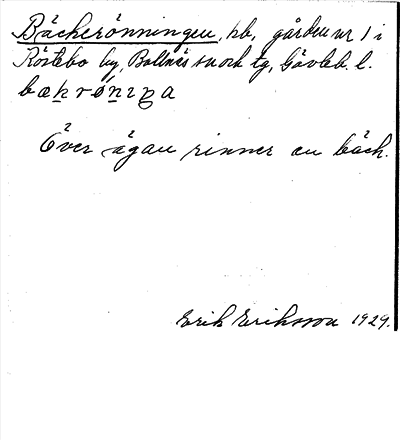 Bäckerönningen, hb, gården nr 1 i
Röstebo by, Bollnäs sn och tg, Gävleb. l.
Över ägan rinner en bäck.
Erik Eriksson 1929.